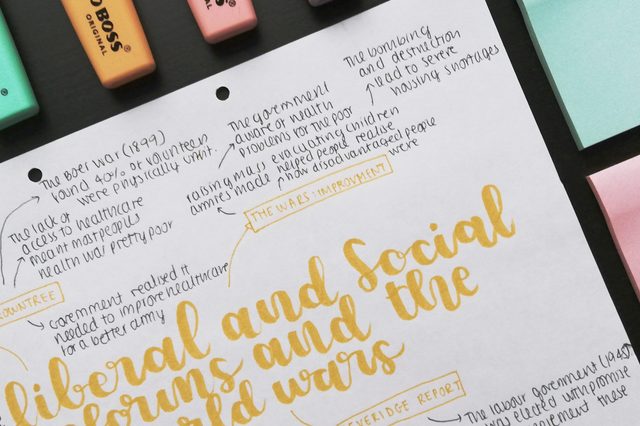 BOSS
ORIGINAL
The bombing
and destruction
lead to severe
housing shortages
The government
aware of health
problems for the poor
The Boer War (1899)
found 40% of volunteers
were physically unfit.
raising mass
armies made
evacuating children
helped people realise
how disadvantaged people
were
THE WARS: IMPROVMENT
The lack of
access to healthcare
meant most peoples
health was pretty poor
ROWNTREE
Government realised it
needed to improve healthcare
for a better army
liberal and Social
reforms and the
world wars
BEVERIDGE REPORT
The labour government (1945)
was elected with promise
these